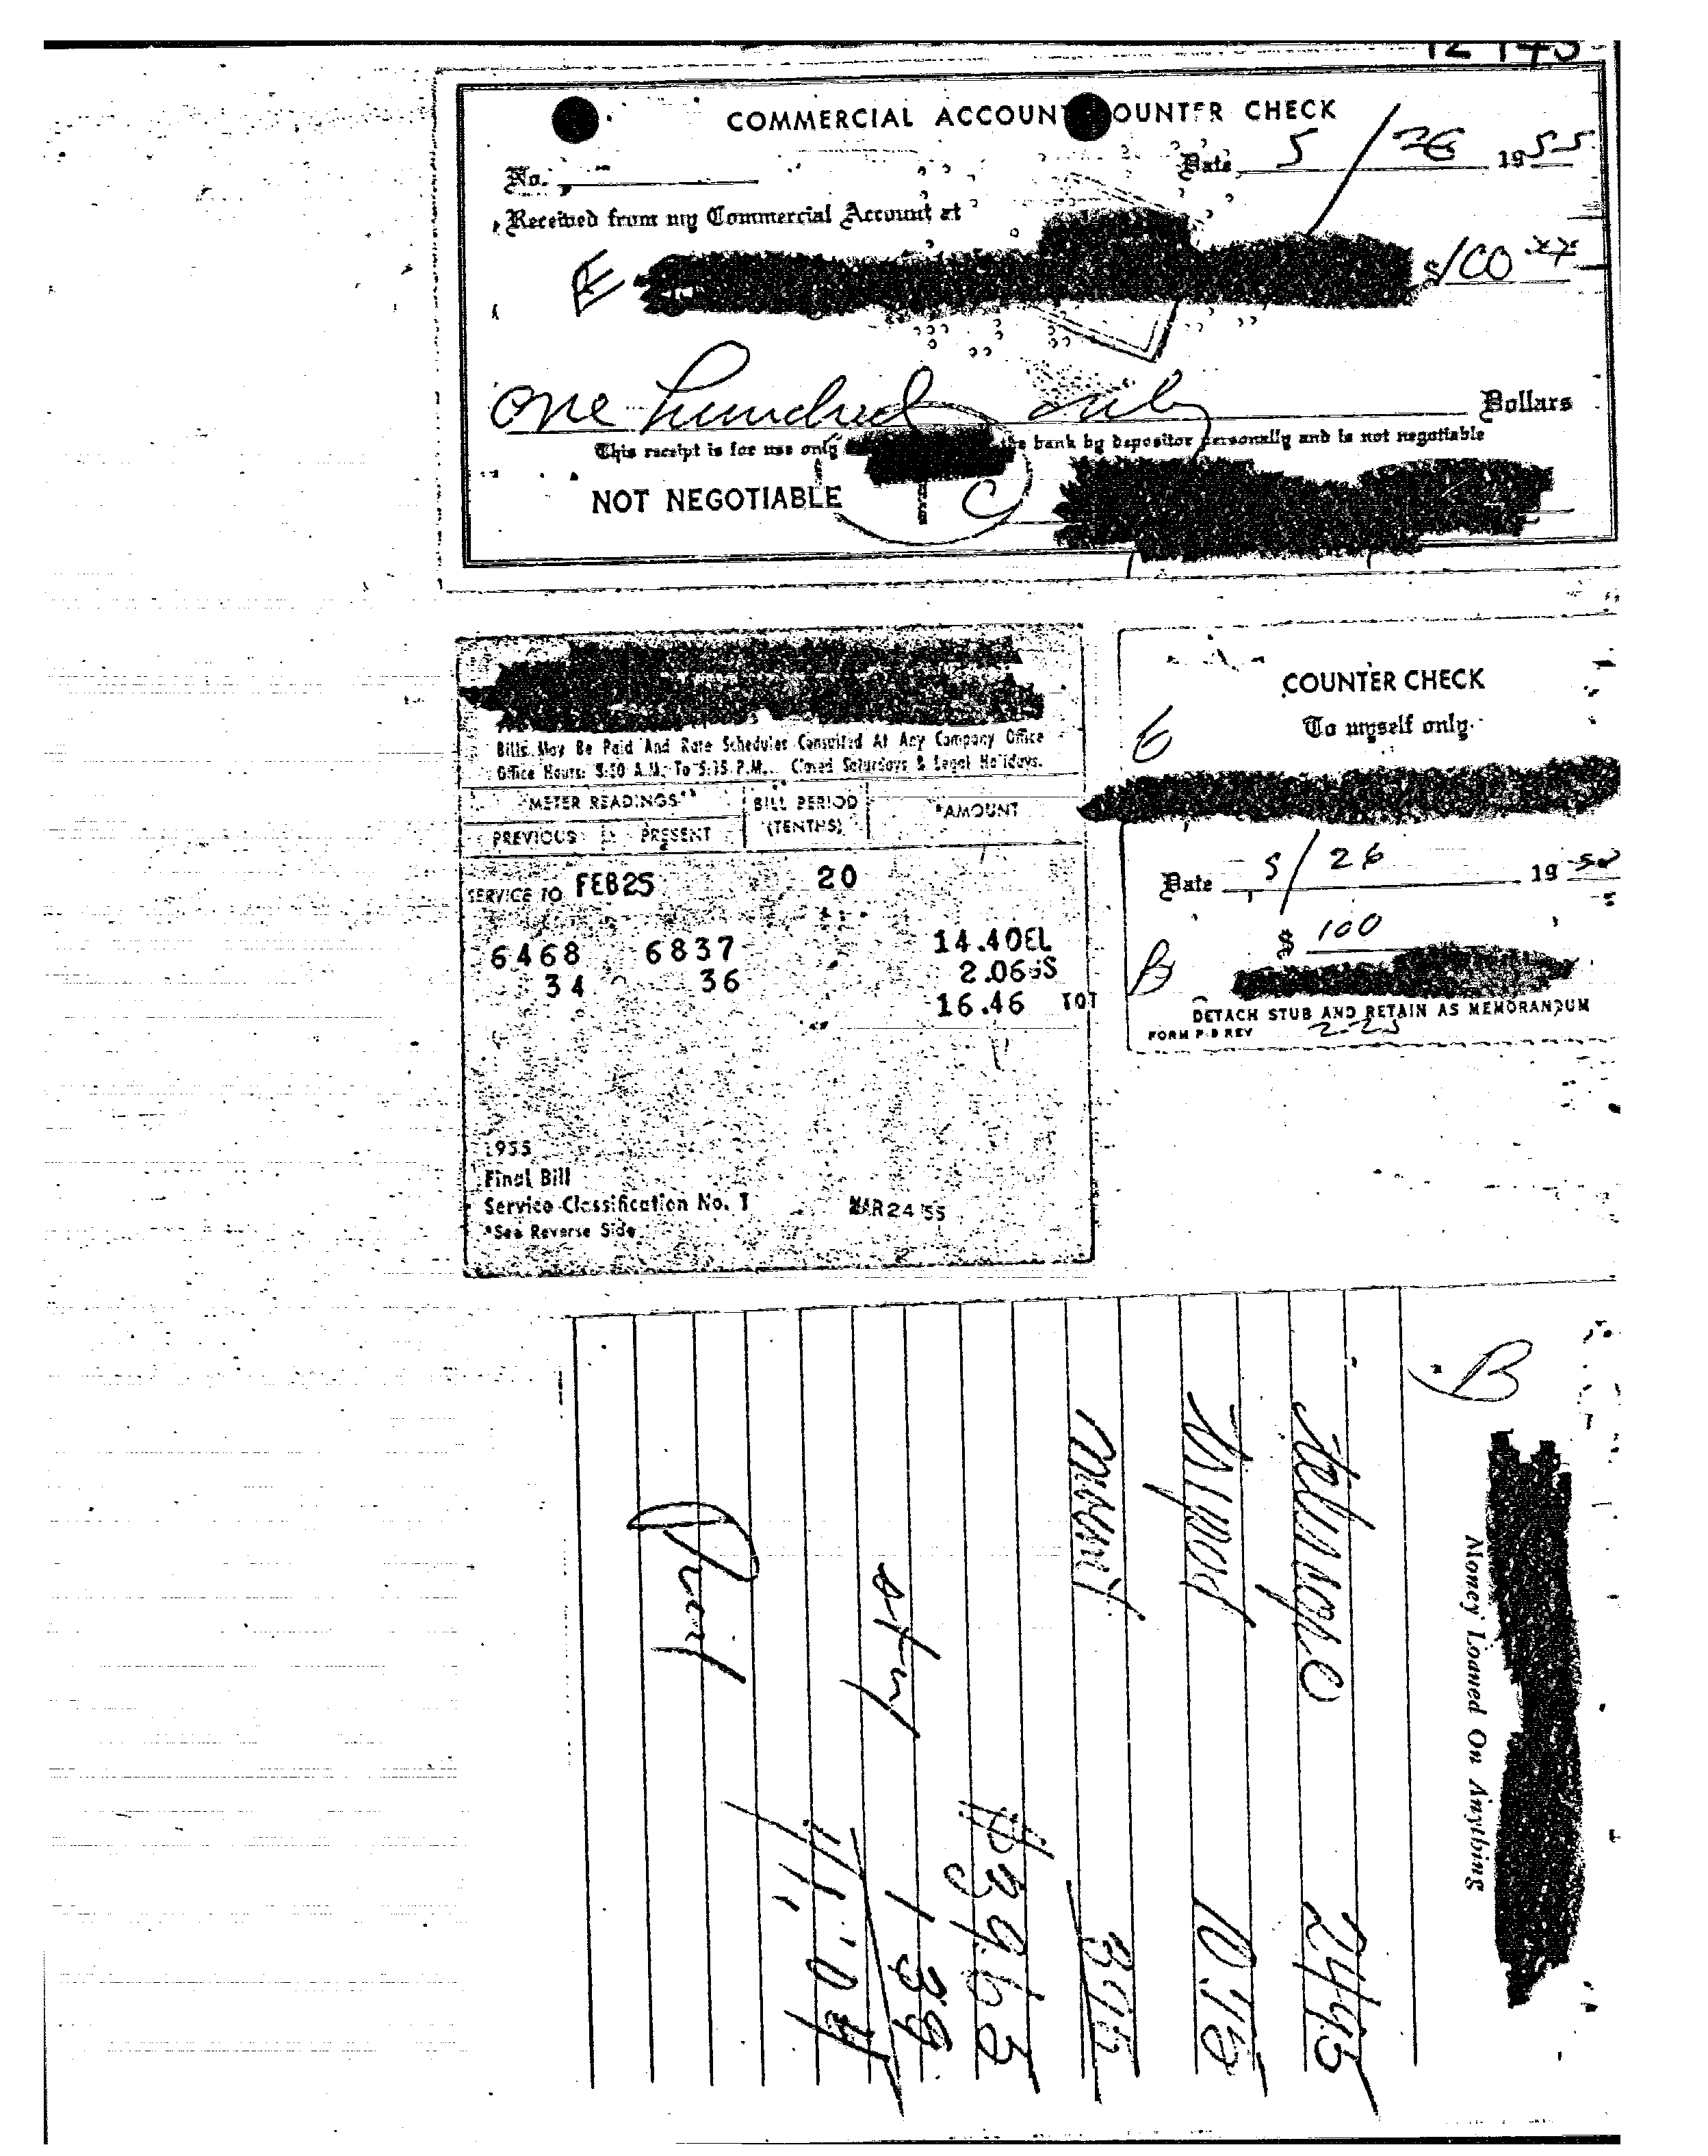 COMMERCIAL ACCOUNT COUNTER CHECK
No. Date 5/26 1955
Received from my Commercial Account at
E $100 xx
One hundred only Dollars
This receipt is for use only the bank by depositor personally and is not negotiable
NOT NEGOTIABLE
Bills May Be Paid And Rate Schedules Consulted At Any Company Office
Office Hours: To P.M. Closed Saturdays & Legal Holidays.
METER READINGS BILL PERIOD (TENTHS) *AMOUNT
PREVIOUS PRESENT
SERVICE TO FEB25 20
6468 6837 14.40EL
34 36 2.06GS
16.46 TOT
1955
Final Bill
Service Classification No. 1 MAR 24 55
*See Reverse Side
COUNTER CHECK
To myself only
Date 5/26 19
$ 100
B
DETACH STUB AND RETAIN AS MEMORANDUM
FORM P-B REV
B
Money Loaned On Anything
Telescope 24.95
Tripod 10.75
Mount 3.95
$39.65
1 39
41.04